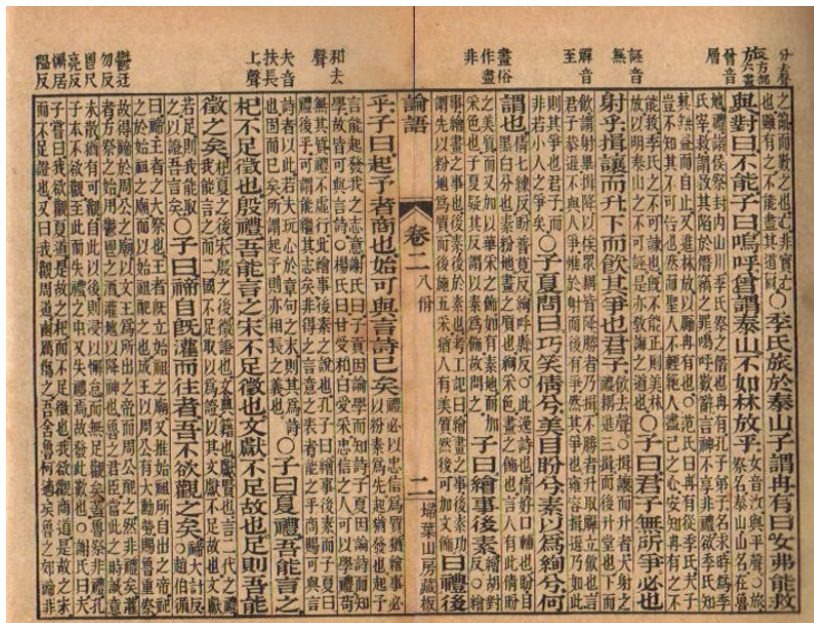 旅方部六畫
曾音層
誣音無
觶音至
畫俗作畵非
和去聲
夫音扶長上聲
鬱迂勿反
鬯尺亮反
懈居隘反
之亂而敷之也尤非實尤
也雖有之不能盡其道爾
○季氏旅於泰山子謂冉有曰女弗能救
與對曰不能子曰嗚呼曾謂泰山不如林放乎
女音汝與平聲○旅
祭名泰山山名在魯
地禮諸侯祭封內山川季氏祭之僭也冉有孔子弟子名求時爲季
氏宰救謂救其陷於僭竊之罪嗚呼歎辭言神不享非禮欲季氏知
其無益而自止又進林放以厲冉有也○范氏曰冉有從季氏夫子
豈不知其不可告也然而聖人不輕絕人盡己之心安知冉有之不
能救季氏之不可諫也旣不能正則美林
放以明泰山之不可誣是亦敎誨之道也
○子曰君子無所爭必也
射乎揖讓而升下而飮其爭也君子
飮去聲○揖讓而升者大射之
禮耦進三揖而後升堂也下而
飮謂射畢揖降以俟衆耦皆降勝者乃揖不勝者升取觶立飮也言
君子恭遜不與人爭惟於射而後有爭然其爭也雍容揖遜乃如此
則其爭也君子而
非若小人之爭矣
○子夏問曰巧笑倩兮美目盼兮素以爲絢兮何
謂也
倩七練反盼普莧反絢呼縣反○此逸詩也倩好口輔也盼目
黑白分也素粉地畫之質也絢采色畫之飾也言人有此倩盼
之美質而又加以華采之飾如有素地而加
采色也子夏疑其反謂以素爲飾故問之
子曰繪事後素
繪胡對
反○繪
事繪畫之事也後素後於素也考工記曰繪畫之事後素功
謂先以粉地爲質而後施五采猶人有美質然後可加文飾
曰禮後
論語
卷二
八佾
二
掃葉山房藏板
乎子曰起予者商也始可與言詩已矣
禮必以忠信爲質猶繪事必
以粉素爲先起猶發也起予
言能起發我之志意謝氏曰子貢因論學而知詩子夏因論詩而知
學故皆可與言詩○楊氏曰甘受和白受采忠信之人可以學禮苟
無其質禮不虛行此繪事後素之說也孔子曰繪事後素而子夏曰
禮後乎可謂能繼其志矣非得之言意之表者能之乎商賜可與言
詩者以此若夫玩心於章句之末則其爲詩
也固而已矣所謂起予則亦相長之義也
○子曰夏禮吾能言之
杞不足徵也殷禮吾能言之宋不足徵也文獻不足故也足則吾能
徵之矣
杞夏之後宋殷之後徵證也文典籍也獻賢也言二代之禮
我能言之而二國不足取以爲證以其文獻不足故也文獻
若足則我能取
之以證吾言矣
○子曰禘自旣灌而往者吾不欲觀之矣
禘大計反
○趙伯循
曰禘王者之大祭也王者旣立始祖之廟又推始祖所自出之帝祀
之於始祖之廟而以始祖配之也成王以周公有大勳勞賜魯重祭
故得禘於周公之廟以文王爲所出之帝而周公配之然非禮矣灌
者方祭之始用鬱鬯之酒灌地以降神也魯之君臣當此之時誠意
未散猶有可觀自此以後則浸以懈怠而無足觀矣蓋魯祭非禮孔
子本不欲觀至此而失禮之中又失禮焉故發此歎也○謝氏曰夫
子嘗曰我欲觀夏道是故之杞而不足徵也我欲觀商道是故之宋
而不足證也又曰我觀周道幽厲傷之吾舍魯何適矣魯之郊禘非